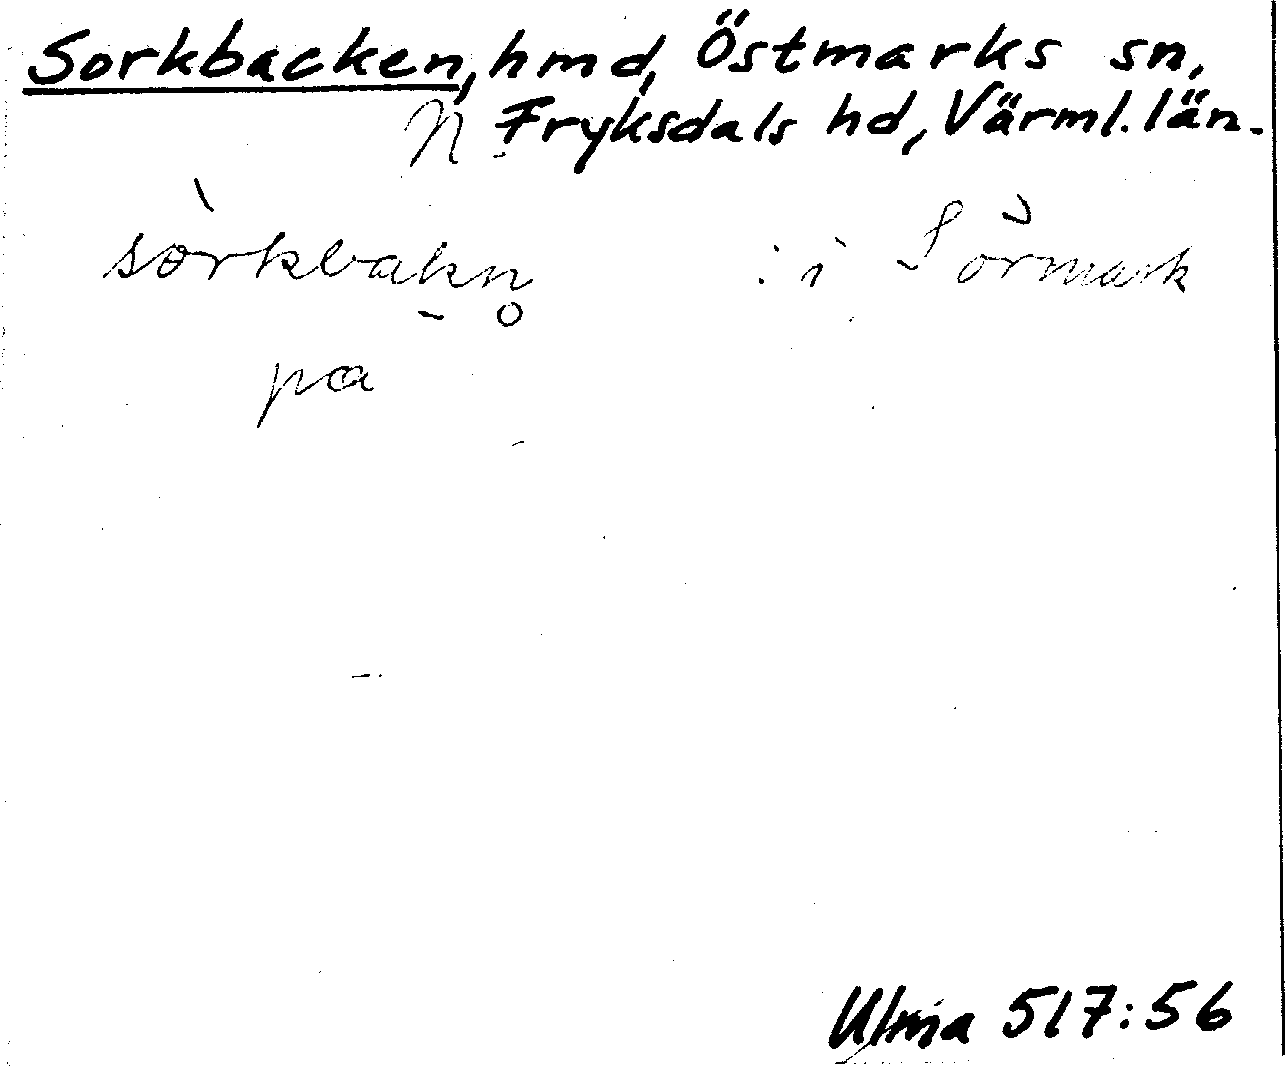 Sorkbacken, hmd, Östmarks sn,
N Fryksdals hd, Värml. län.
sòrkbakn̥ : i Sörmark
pa
Ulma 517:56